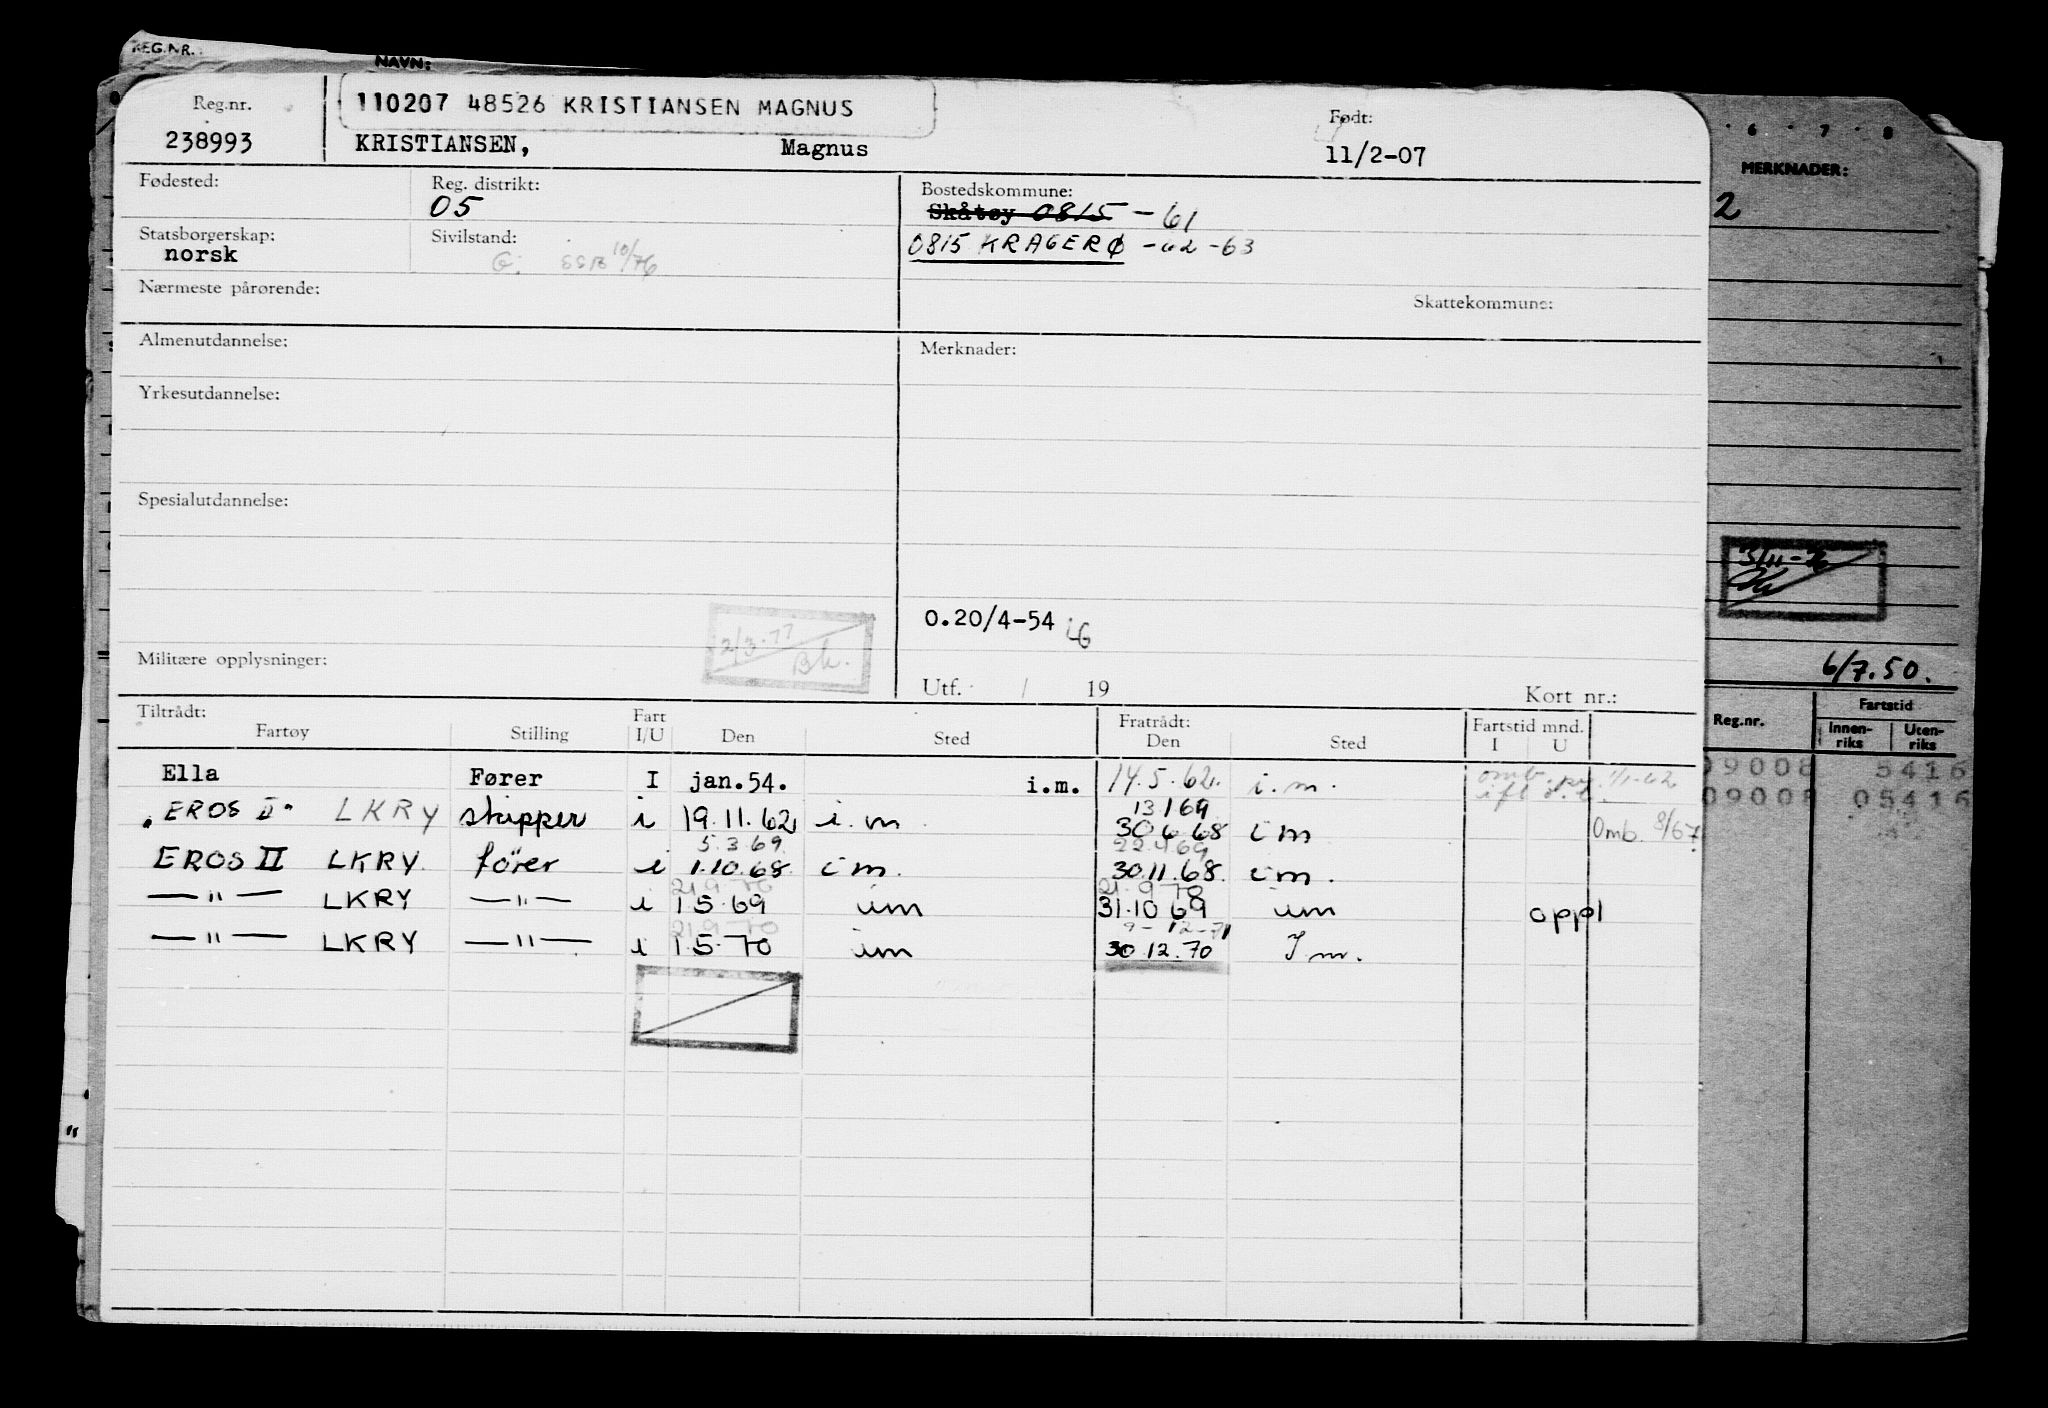 REG.NR.
NAVN:
Reg.nr.
238993
110207 48526 KRISTIANSEN MAGNUS
KRISTIANSEN, Magnus
Født:
11/2-07
Fødested:
Reg. distrikt:
05
Bostedskommune:
Skåtøy 0815 - 61
0815 KRAGERØ -62 -63
Statsborgerskap:
norsk
Sivilstand:
G. SSB 10/76
Nærmeste pårørende:
Skattekommune:
Almenutdannelse:
Merknader:
Yrkesutdannelse:
Spesialutdannelse:
0.20/4-54
2/3-77
Bh.
Militære opplysninger:
Utf. / 19
Kort nr.:
Tiltrådt:
Fartøy Stilling Fart I/U Den Sted Fratrådt: Den Sted Fartstid mnd. I U
Ella Fører I jan.54. i.m. 14.5.62. i.m. omb. 1/1-62
13 1 69
"EROS II" LKRY skipper i 19.11.62 i.m 30 6 68 im Omb. 8/67
5.3 69 22.4 69
EROS II LKRY. fører i 1.10.68. im. 30.11.68. im.
21 9 70 21.9-70
—"— LKRY —"— i 1 5.69 im 31.10 69 im oppl
21 9 70
—"— LKRY —"— i 1.5-70 im 30.12.70 I.m.
6 . 7 . 8
MERKNADER:
2
3/11-76
6/7.50.
Reg.nr.
Fartstid
Innen-riks Uten-riks
09008 5416
09008 05416
"